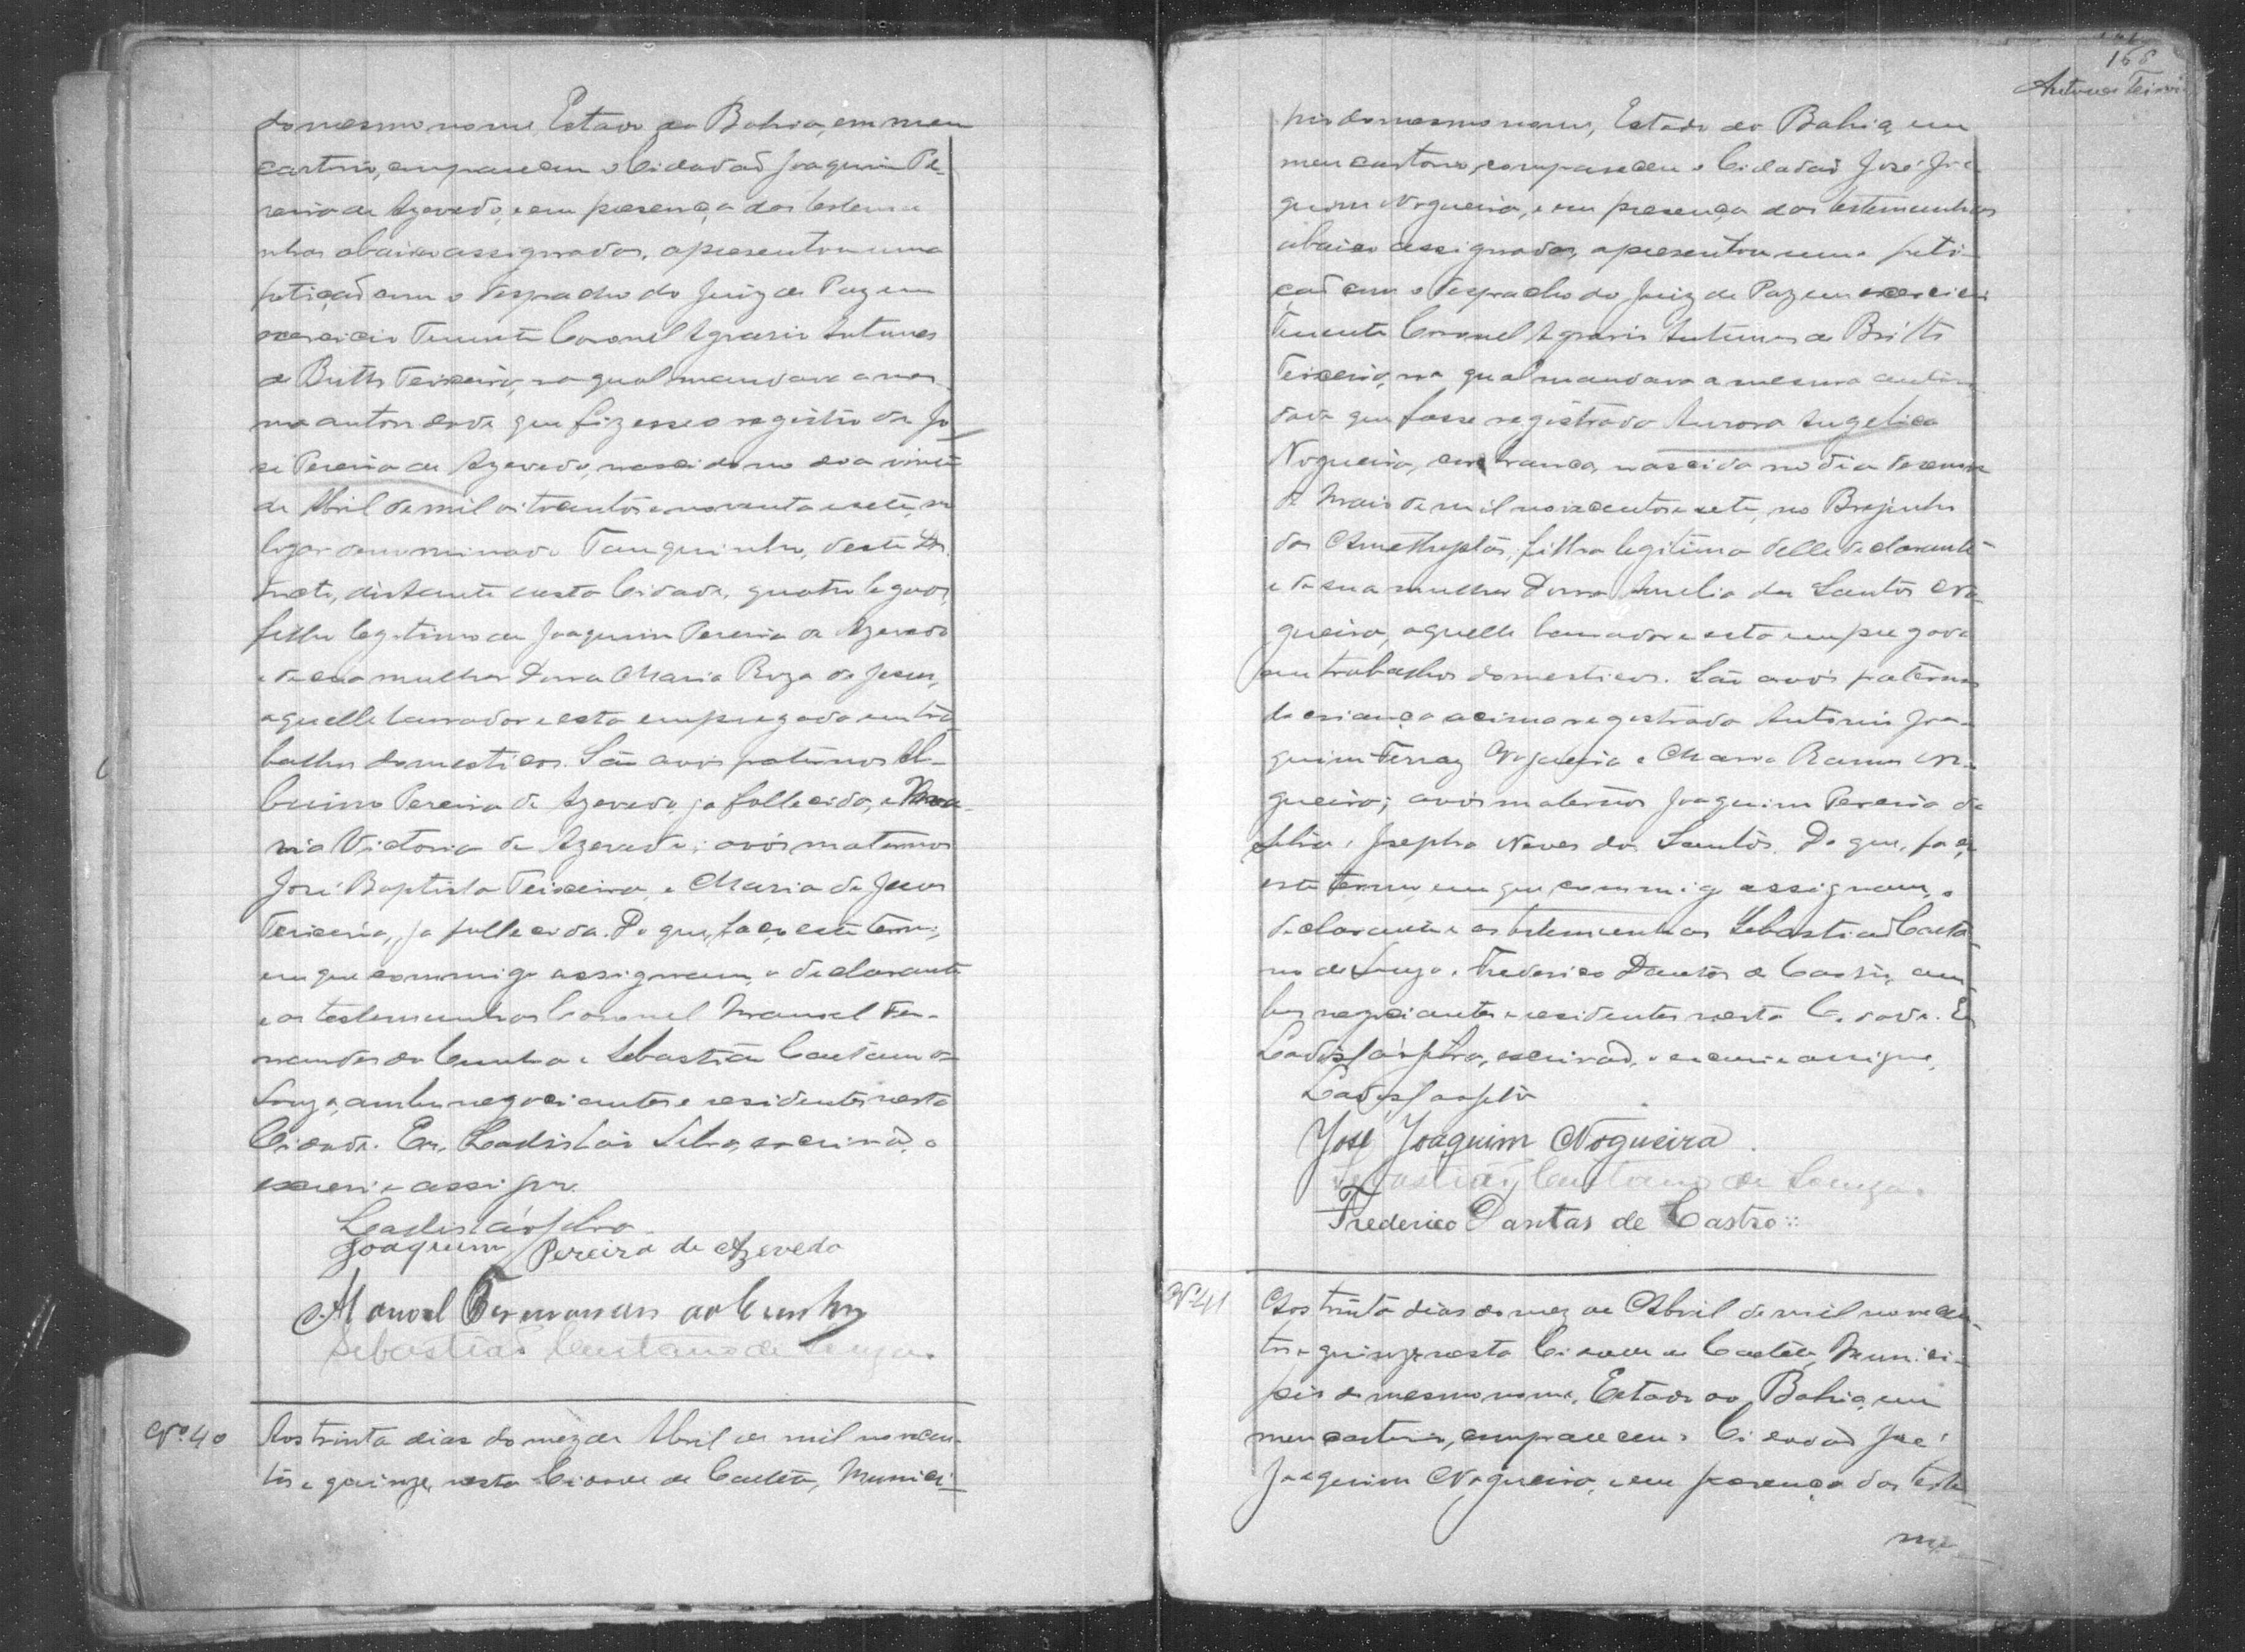 do mesmo nome, Estado da Bahia, em meu
cartorio, compareceu o Cidadaõ Joaquim Pe-
reira de Azevedo, e em presença das testemu
nhas abaixo assignadas, apresentou uma
petiçaõ com o despacho do Juiz de Paz em
exercicio Tenente Coronel Agrario Antunes
de Britto Teixeira, na qual mandava a mes
ma autoridade que fizesse o registro de Jo
sé Pereira de Azevedo, nascido no dia vinte
de Abril de mil oitocentos e noventa e sete, no
logar denominado Tanquinho, deste Dis
tricto, distante desta Cidade, quatro legoas,
filho legitimo de Joaquim Pereira de Azevedo
e de sua mulher Dona Maria Roza de Jesus,
aquelle lavrador e esta empregada em tra
balhos domesticos. São avós paternos
Pereira de Azevedo, ja fallecido, e Ma-
ria Victoria de Azevedo; avós maternos
José Baptista Teixeira, e Maria de Jesus
Teixeira, ja fallecida. Do que, faço este termo,
em que commigo assignam, o declarante
e as testemunhas Coronel Manoel Fer-
nandes da Cunha e Sebastião Caetano de
Souza, ambos negociantes e residentes nesta
Cidade. Eu, Ladisláo Silva, escrivaõ, o
escrevi e assigno.
Ladisláo Silva
Joaquim Pereira de Azevedo
Manoel Fernandes da Cunha
Sebastião Caetano de Souza.
Nº 40 Aos trinta dias do mez de Abril de mil novecen-
tos e quinze, nesta Cidade de Caeteté, Munici-
168
Antunes Teixeira
pio do mesmo nome, Estado da Bahia, em
meu cartorio, compareceu o Cidadaõ José Joa-
quim Nogueira, e em presença das testemunhas
abaixo assignadas, apresentou uma peti-
çaõ com o despacho do Juiz de Paz em exercicio
Tenente Coronel Agrario Antunes de Britto
Teixeira, na qual mandava a mesma autori
dade que fosse registrada Aurora Angelica
Nogueira, côr branca, nascida no dia
de Maio de mil novecentos e sete, no Brejinho
das Amethystas, filha legitima delle declarante
e de sua mulher Dona Amelia dos Santos No-
gueira, aquelle lavrador e esta empregada
em trabalhos domesticos. São avós paternos
da criança acima registrada Antonio Joa-
quim Ferraz Nogueira e Maria Ramos No-
gueira; avós maternos Joaquim Pereira da
Silva e Josepha Neves dos Santos. Do que, faço
este termo, em que commigo assignam, o
declarante e as testemunhas Sebastiaõ Caeta
no de Souza e Frederico Dantas de Castro, am
bos negociantes e residentes nesta Cidade. Eu
Ladisláo Silva, escrivaõ, o escrevi e assigno.
Ladisláo Silva
José Joaquim Nogueira.
Sebastião Caetano de Souza.
Frederico Dantas de Castro
Nº 41 Aos trinta dias do mez de Abril de mil novecen-
tos e quinze, nesta Cidade de Caeteté, Munici-
pio do mesmo nome, Estado da Bahia, em
meu cartorio, compareceu o Cidadaõ José
Joaquim Nogueira, e em presença das teste-
mu-